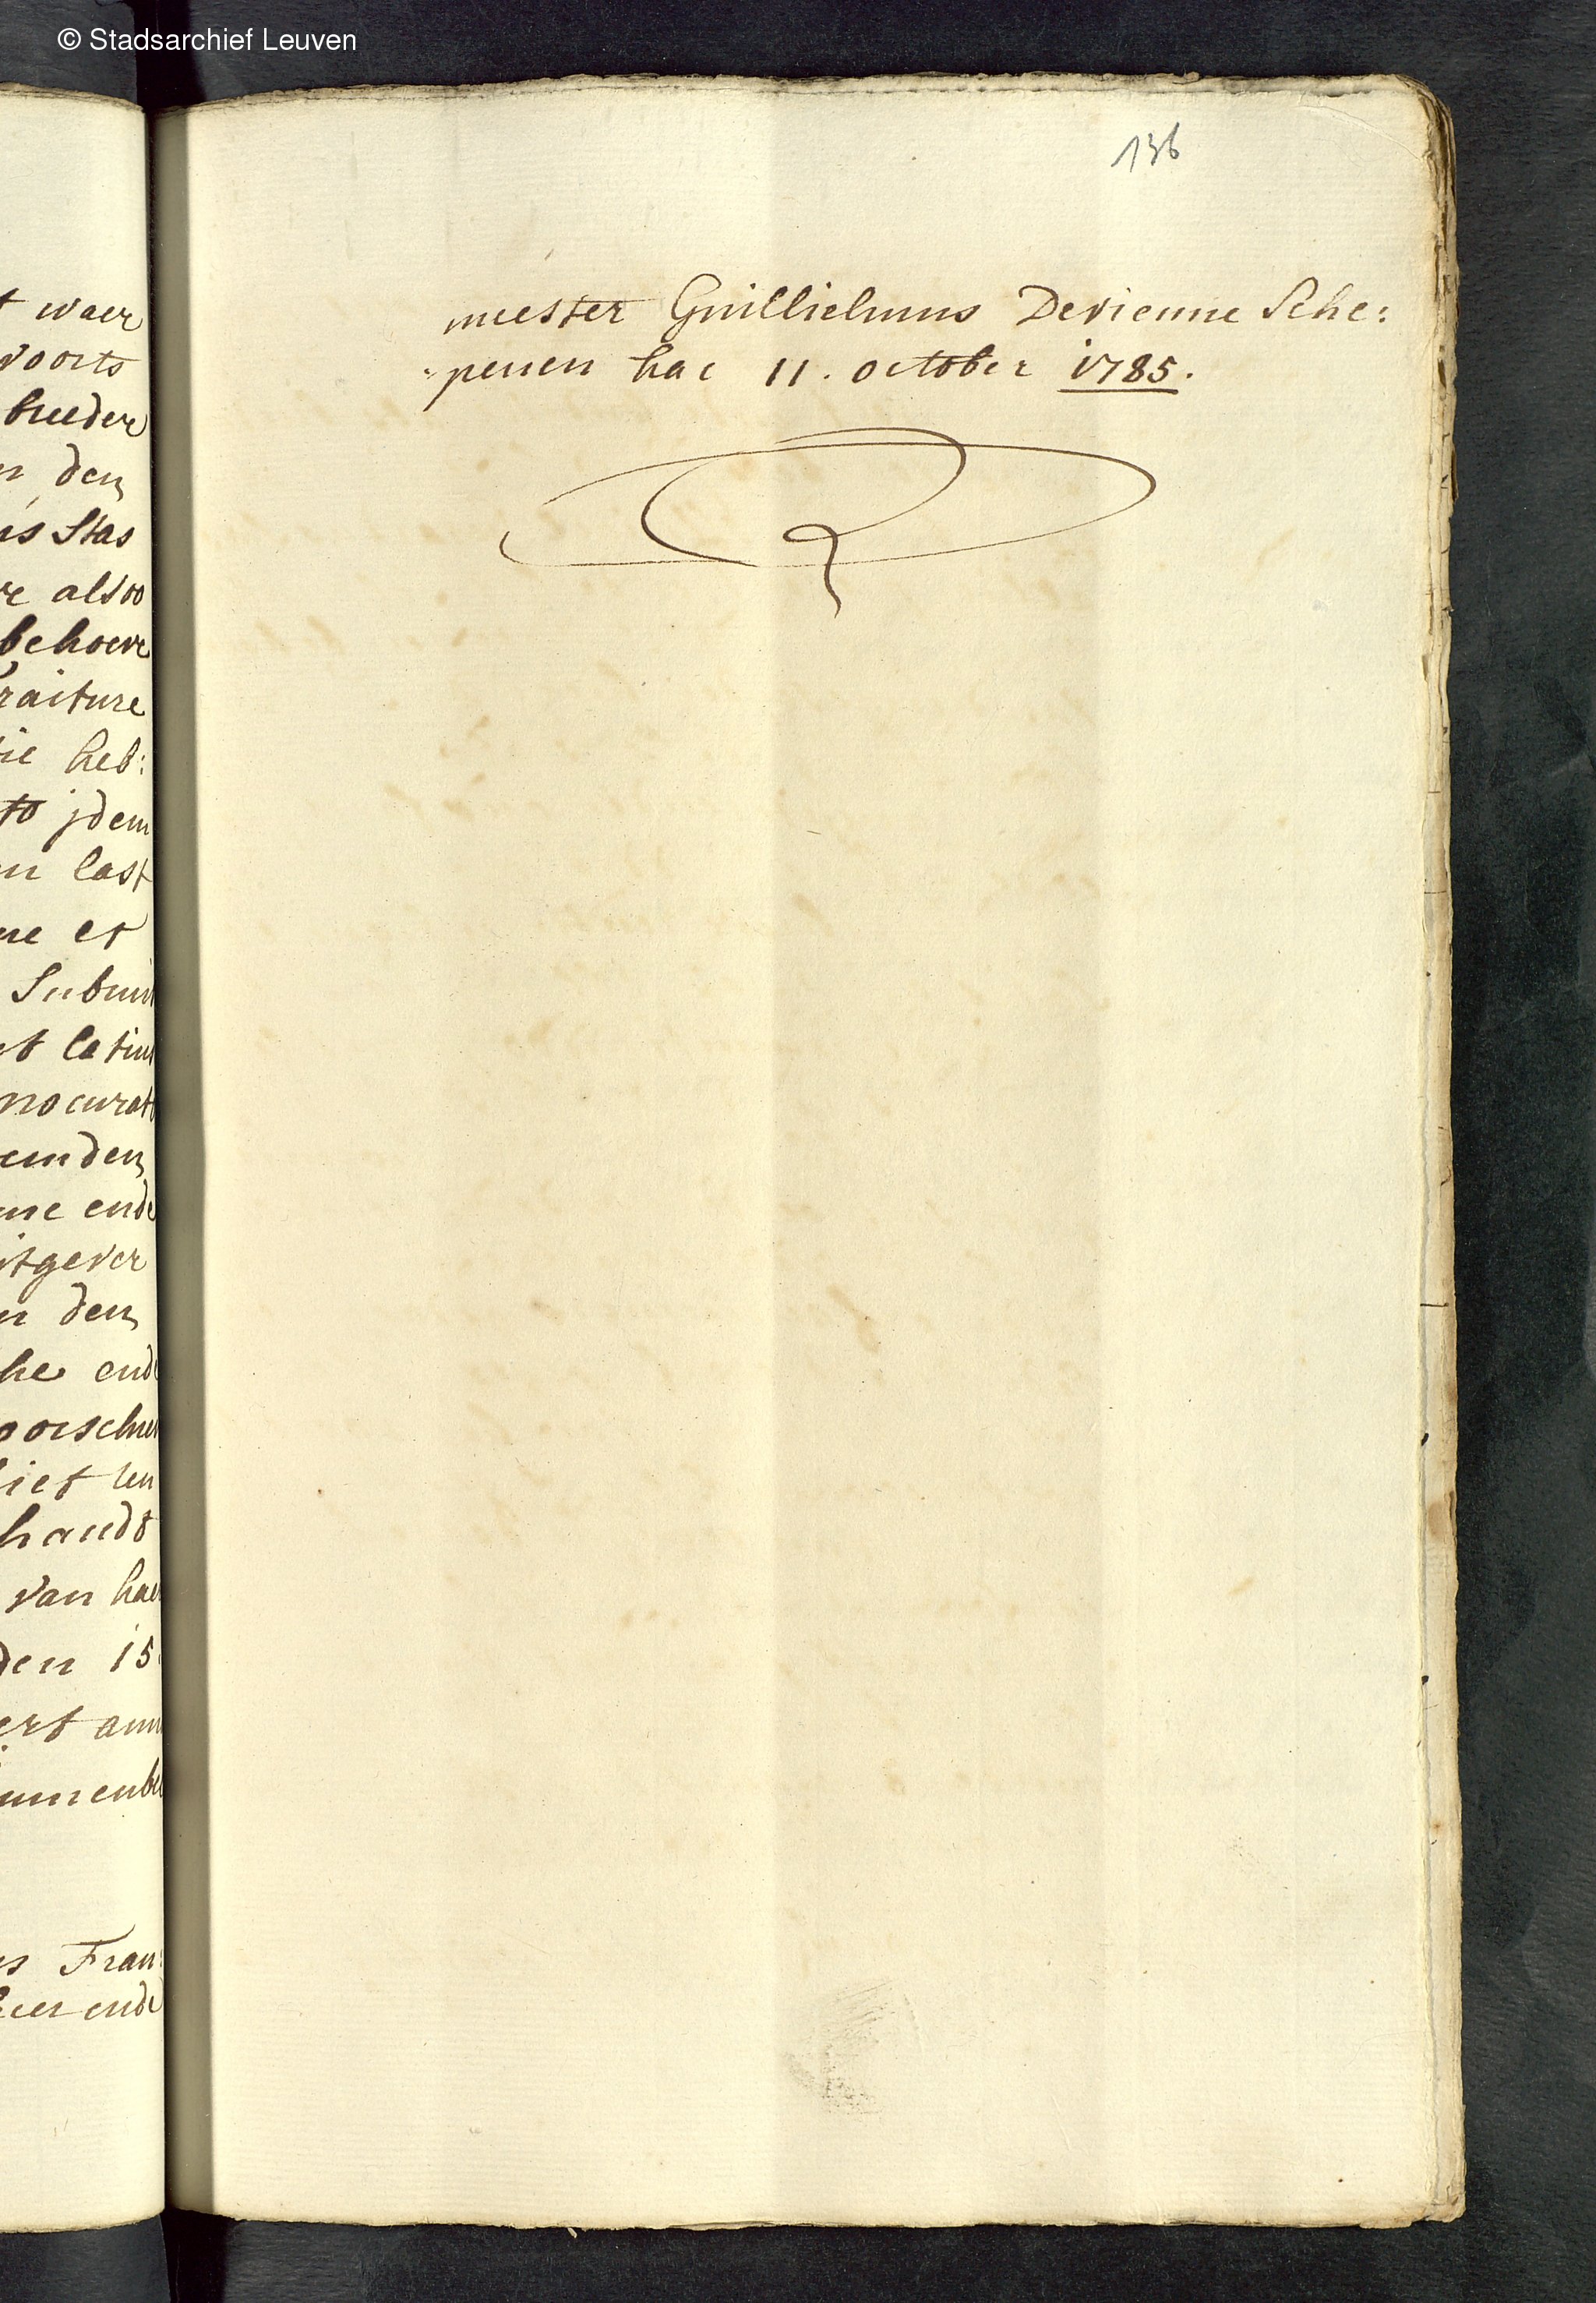 © Stadsarchief Leuven
waer
voorts
breeder
den
Stas
alsoo
behoeve
raiture
heb:
to jdem
last
et
Submi
latiu
nocurat
emden
ende
itgever
den
he end
oorschre
iet
handt
van hae
den 15
ert ann
umenbe
Fran:
ende
136
meester Guillielmus Devienne Sche:
"penen hac 11. october 1785.